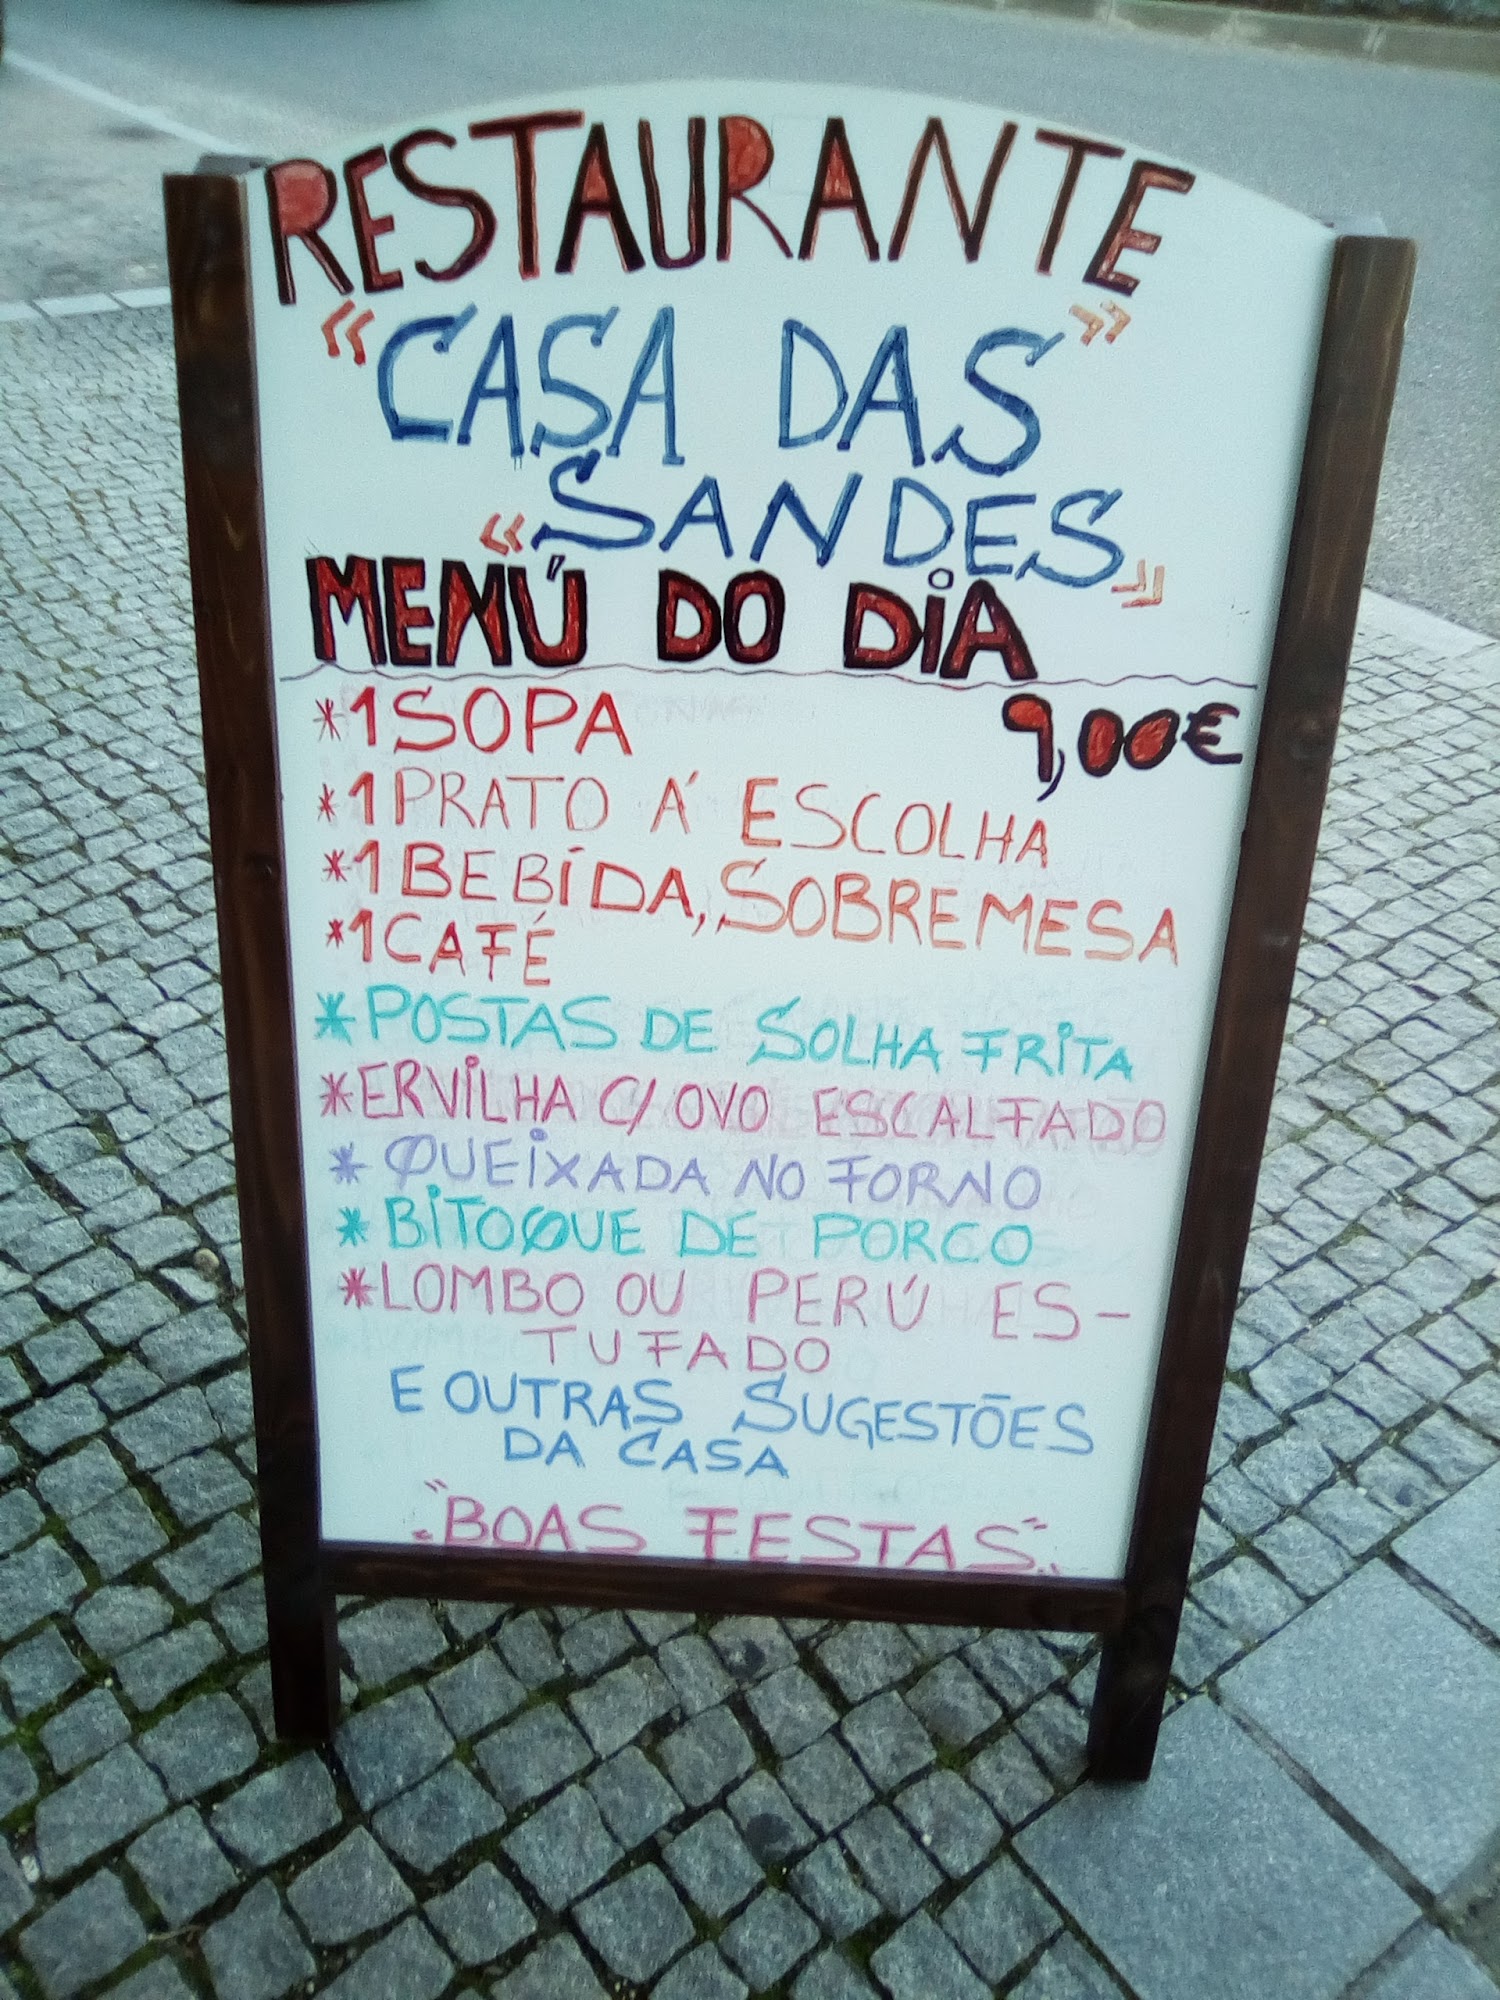 RESTAURANTE
"CASA DAS"
"SANDES"
MENÚ DO DIA
*1 SOPA 9,00€
*1 PRATO Á ESCOLHA
*1 BEBIDA, SOBREMESA
*1 CAFÉ
*POSTAS DE SOLHA FRITA
*ERVILHA C/ OVO ESCALFADO
*QUEIXADA NO FORNO
*BITOQUE DE PORCO
*LOMBO OU PERÚ ES-
TUFADO
E OUTRAS SUGESTÕES
DA CASA
"BOAS FESTAS"